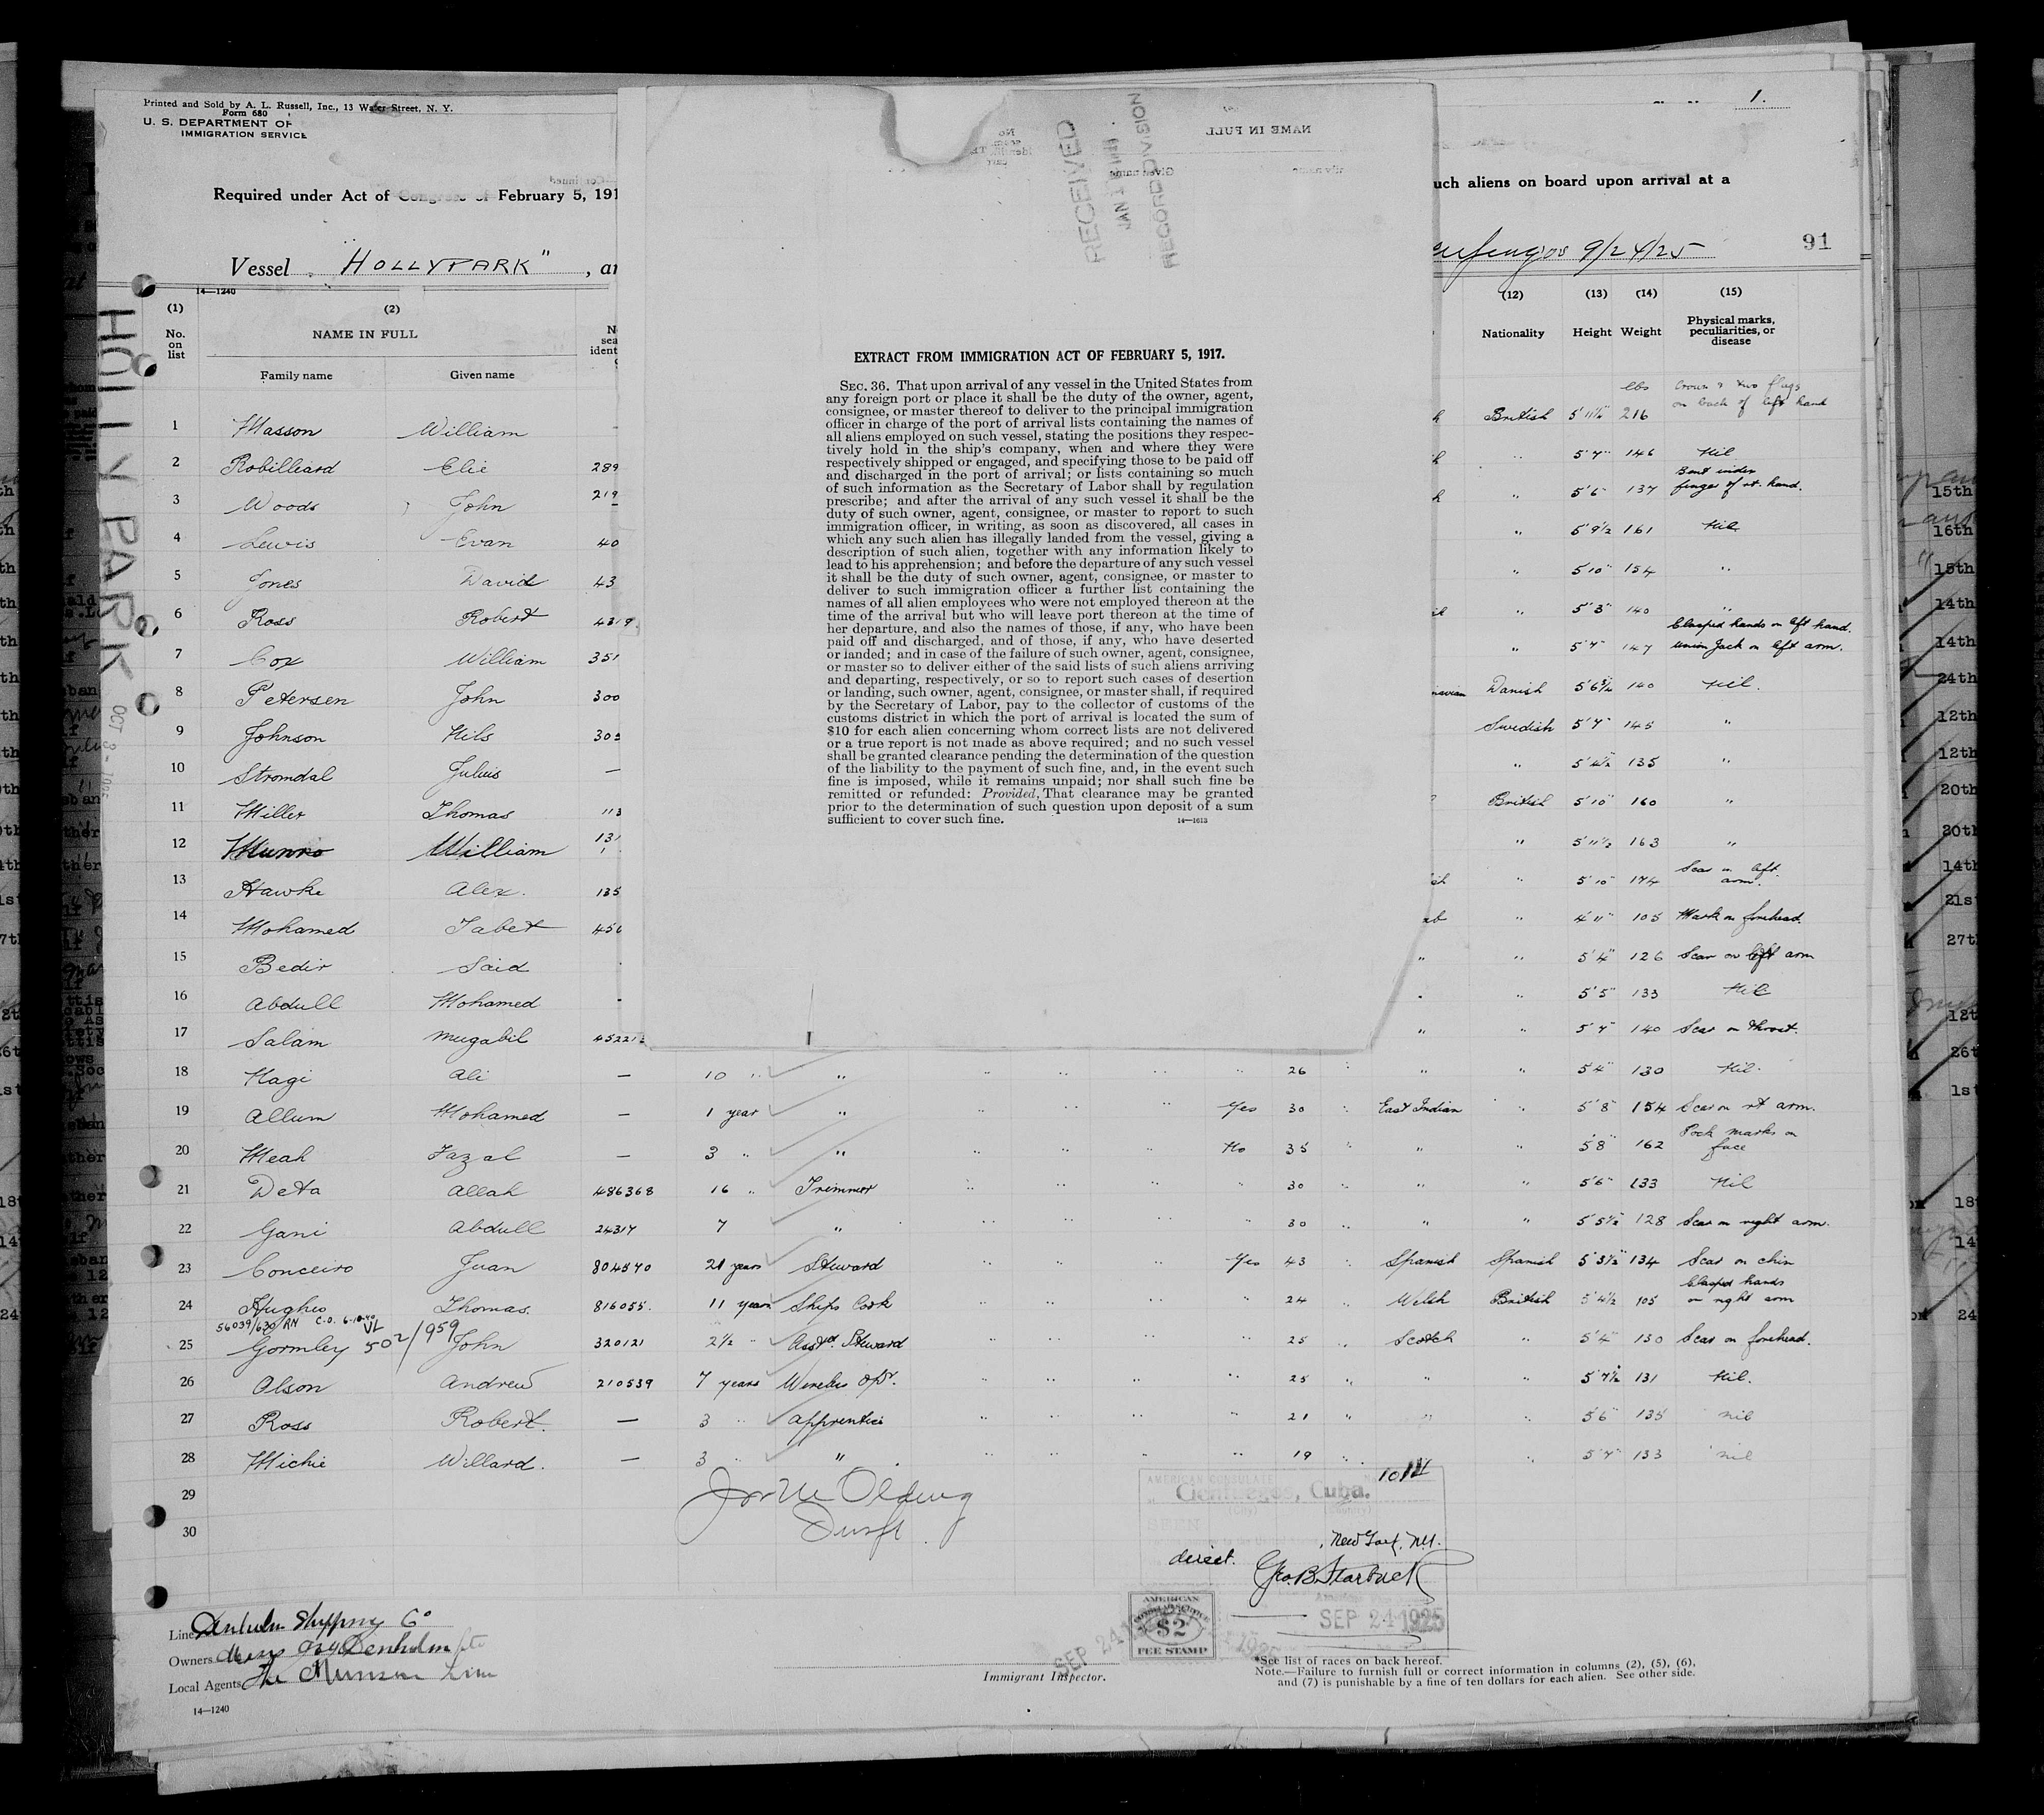 Printed and Sold by A. L. Russell, Inc., 13 Water Street, N. Y.
Form 680
U. S. DEPARTMENT OF
IMMIGRATION SERVICE
1.
Required under Act of Congress of February 5, 191
uch aliens on board upon arrival at a
Vessel "HOLLYPARK" , ar
9/24/25
91
RECEIVED
RECORD DIVISION
NAME IN FULL
Given name
HOLLYPARK
14—1240
(1) (2) (12) (13) (14) (15)
No. on list NAME IN FULL Nationality Height Weight Physical marks, peculiarities, or disease
Family name Given name
lbs
1 Masson William British 5'11½" 216 Crown & two flags on back of left hand
2 Robilliard Elie 289 " 5'7" 146 Nil
3 Woods John 219 " 5'6" 137 Bent index finger of rt. hand.
4 Lewis Evan 40 " 5'9½ 161 Nil
5 Jones David 43 " 5'10" 154 "
6 Ross Robert 4319 " 5'3" 140 "
7 Cox William 351 " 5'7" 147 Clasped hands on left hand. Union Jack on left arm.
8 Petersen John 300 navian Danish 5'6½ 140 Nil.
9 Johnson Nils 303 Swedish 5'7" 145 "
10 Stromdal Julius — " 135 "
11 Miller Thomas 113 British 5'10" 160 "
12 Munro William 131 " 5'11½ 163 "
13 Hawke Alex. 135 " 5'10" 174 Scar on left arm.
14 Mohamed Tabet 450 ab " 4'11" 105 Mark on forehead.
15 Bedir Said " " 5'4" 126 Scar on left arm
16 Abdull Mohamed " 5'5" 133 Nil
17 Salam Mugabil 45221 " " 5'7" 140 Scar on throat.
18 Hagi Ali — 10 " " " " " " 26 " " " 5'4" 130 Nil.
19 Allum Mohamed — 1 year " " " " Yes 30 " East Indian " 5'8" 154 Scar on rt arm.
20 Meah Fazal — 3 " " " " " No 35 " " " 5'8" 162 Pock marks on face
21 Deta Allah 486368 16 " Trimmer " " " " 30 " " " 5'6" 133 Nil
22 Gani Abdull 24317 7 " " " " " 30 " " " 5'5½" 128 Scar on right arm.
23 Conceiro Juan 804570 21 years Steward " " " Yes 43 " Spanish Spanish 5'3½" 134 Scar on chin
24 Hughes Thomas. 816055. 11 years Ships Cook " " " " 24 " Welsh British 5'4½ 105 Clasped hands on right arm
56039/630 RN C.O. 6-10-40 VL
25 Gormley 502/959 John 320121 2½ " Asst. Steward " " " " 25 " Scotch " 5'4" 130 Scar on forehead.
26 Olson Andrew 210539 7 years Wireless Opr. " " " " 25 " " " 5'7½ 131 Nil.
27 Ross Robert. — 3 " Apprentice " " " " 21 " " " 5'6" 135 nil
28 Michie Willard. — 3 " " " " " " 19 " " 5'7" 133 nil
29
30
EXTRACT FROM IMMIGRATION ACT OF FEBRUARY 5, 1917.
SEC. 36. That upon arrival of any vessel in the United States from
any foreign port or place it shall be the duty of the owner, agent,
consignee, or master thereof to deliver to the principal immigration
officer in charge of the port of arrival lists containing the names of
all aliens employed on such vessel, stating the positions they respec-
tively hold in the ship's company, when and where they were
respectively shipped or engaged, and specifying those to be paid off
and discharged in the port of arrival; or lists containing so much
of such information as the Secretary of Labor shall by regulation
prescribe; and after the arrival of any such vessel it shall be the
duty of such owner, agent, consignee, or master to report to such
immigration officer, in writing, as soon as discovered, all cases in
which any such alien has illegally landed from the vessel, giving a
description of such alien, together with any information likely to
lead to his apprehension; and before the departure of any such vessel
it shall be the duty of such owner, agent, consignee, or master to
deliver to such immigration officer a further list containing the
names of all alien employees who were not employed thereon at the
time of the arrival but who will leave port thereon at the time of
her departure, and also the names of those, if any, who have been
paid off and discharged, and of those, if any, who have deserted
or landed; and in case of the failure of such owner, agent, consignee,
or master so to deliver either of the said lists of such aliens arriving
and departing, respectively, or so to report such cases of desertion
or landing, such owner, agent, consignee, or master shall, if required
by the Secretary of Labor, pay to the collector of customs of the
customs district in which the port of arrival is located the sum of
$10 for each alien concerning whom correct lists are not delivered
or a true report is not made as above required; and no such vessel
shall be granted clearance pending the determination of the question
of the liability to the payment of such fine, and, in the event such
fine is imposed, while it remains unpaid; nor shall such fine be
remitted or refunded: Provided, That clearance may be granted
prior to the determination of such question upon deposit of a sum
sufficient to cover such fine.
14—1613
AMERICAN CONSULATE
Cienfuegos, Cuba.
(City) (Country)
SEEN
direct.
Geo. B. Starbuck
SEP 24 1925
AMERICAN
$2
FEE STAMP
SEP 24 1925
Line Shipping Co
Owners Denholm
Local Agents The Munson Line
14—1240
Immigrant Inspector.
*See list of races on back hereof.
Note.—Failure to furnish full or correct information in columns (2), (5), (6),
and (7) is punishable by a fine of ten dollars for each alien. See other side.
15th
16th
15th
14th
14th
24th
12th
12th
20th
20th
14th
21st
27th
12th
26th
1st
18th
14th
24